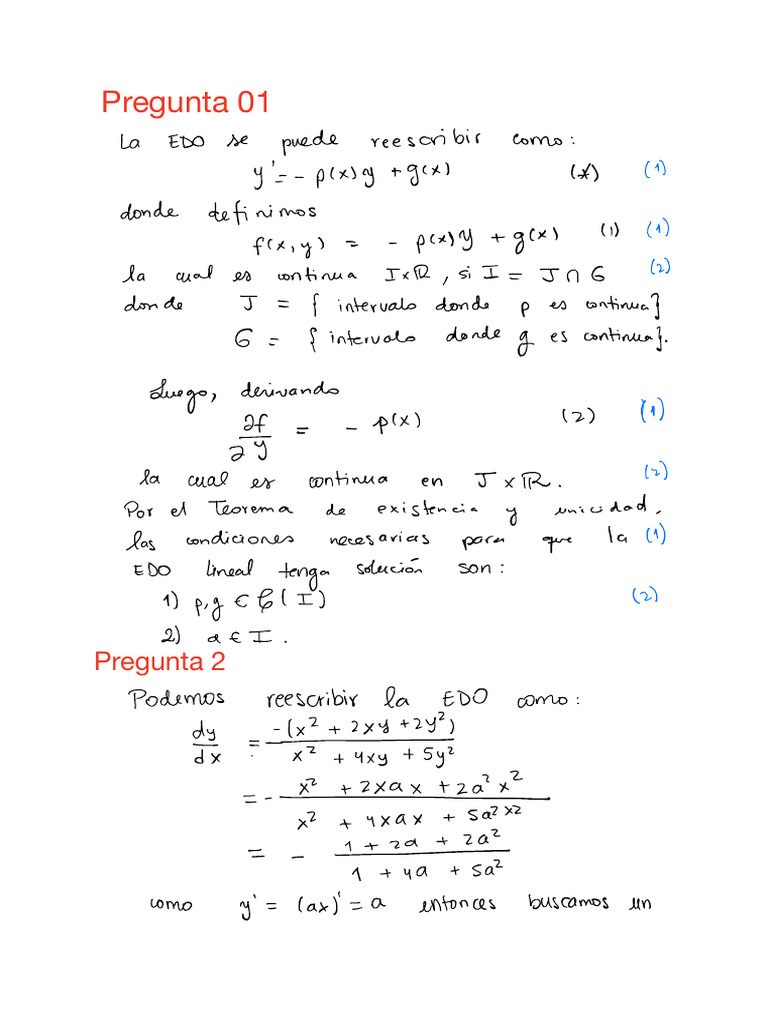 Pregunta 01
La EDO se puede reescribir como:
y' = - p(x)y + g(x) (*) (1)
donde definimos
f(x,y) = - p(x)y + g(x) (1) (1)
la cual es continua I×ℝ, si I = J ∩ G (2)
donde J = { intervalo donde p es continua}
G = { intervalo donde g es continua}.
Luego, derivando
∂f/∂y = - p(x) (2) (1)
la cual es continua en J×ℝ. (2)
Por el Teorema de existencia y unicidad,
las condiciones necesarias para que la (1)
EDO lineal tenga solución son:
1) p,g ∈ C(I) (2)
2) a ∈ I.
Pregunta 2
Podemos reescribir la EDO como:
dy/dx = -(x² + 2xy + 2y²)/(x² + 4xy + 5y²)
= - (x² + 2xax + 2a²x²)/(x² + 4xax + 5a²x²)
= - (1 + 2a + 2a²)/(1 + 4a + 5a²)
como y' = (ax)' = a entonces buscamos un